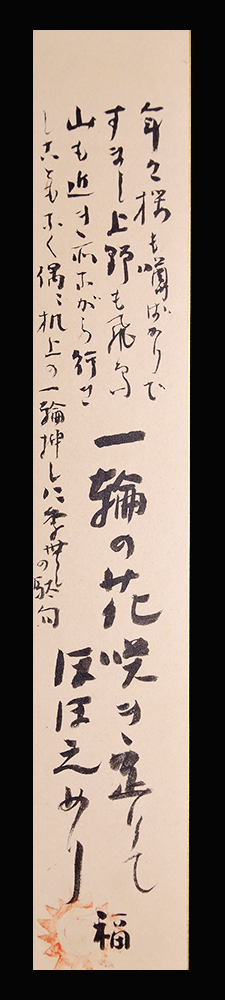 年々桜も噂ばかりで
すまし上野も飛鳥
山も近き所ながら行き
しこともなく偶々机上の一輪挿しに
の駄句
一輪の花咲き立りて
ほほえめり
福